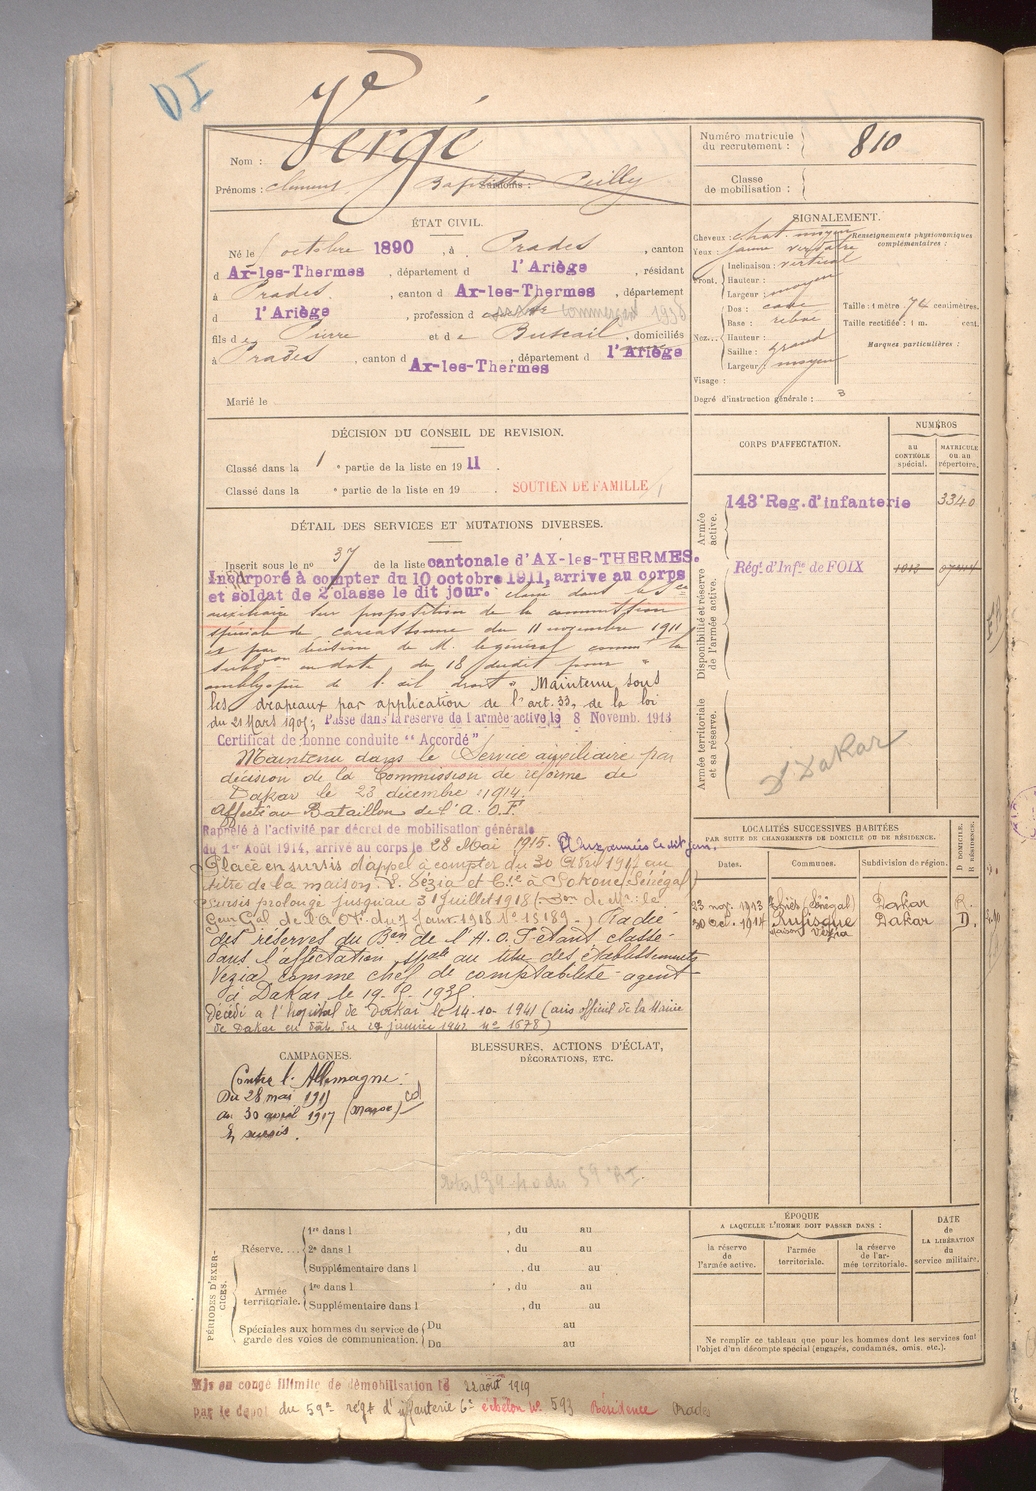 DI
Nom : Vergé
Prénoms : Clément Baptiste Surnoms :
Numéro matricule du recrutement : 810
Classe de mobilisation :
ÉTAT CIVIL.
Né le octobre 1890 , à Prades , canton
d Ax-les-Thermes , département d l'Ariège , résidant
à Prades , canton d Ax-les-Thermes , département
d l'Ariège , profession d
fils de Pierre et de Buscail , domiciliés
à Prades , canton d Ax-les-Thermes , département d l'Ariège
Marié le
SIGNALEMENT.
Cheveux : chat. moyen
Yeux : jaune verdatre
Renseignements physionomiques complémentaires :
Front. Inclinaison : vertical
Hauteur :
Largeur : moyen
Nez... Dos : cave
Base : relevé
Hauteur :
Saillie : grand
Largeur : moyen
Visage :
Degré d'instruction générale : 3
Taille : 1 mètre 74 centimètres.
Taille rectifiée : 1 m. cent.
Marques particulières :
DÉCISION DU CONSEIL DE REVISION.
Classé dans la 1 e partie de la liste en 1911 .
Classé dans la e partie de la liste en 19 . SOUTIEN DE FAMILLE
CORPS D'AFFECTATION.
NUMÉROS
AU CONTRÔLE spécial.
MATRICULE OU AU répertoire.
Armée active.
143e Reg. d'infanterie 3340
Disponibilité et réserve de l'armée active.
Régt. d'Infie de FOIX
Armée territoriale et sa réserve.
Dakar
DÉTAIL DES SERVICES ET MUTATIONS DIVERSES.
Inscrit sous le no 37 de la liste cantonale d'AX-les-THERMES.
Incorporé à compter du 10 octobre 1911, arrive au corps
et soldat de 2 classe le dit jour. classé dans le Sce
auxiliaire sur proposition de la commission
spéciale de Carcassonne du 11 novembre 1911
et par décision de M. le général commt la
Subdon en date du 18 dudit pour "
amblyopie de l'œil droit" Maintenu sous
les drapeaux par application de l'art. 33, de la loi
du 21 Mars 1905; Passé dans la réserve de l'armée active le 8 Novemb. 1913
Certificat de bonne conduite "Accordé"
Maintenu dans le Service auxiliaire par
décision de la Commission de réforme de
Dakar le 23 décembre 1914.
Affecté au Bataillon de l'A. O. F.
Rappelé à l'activité par décret de mobilisation générale
du 1er Août 1914, arrivé au corps le 28 Mai 1915.
Placé en sursis d'appel à compter du 30 1917 au
titre de la maison L. Vézia et Cie à Sokone, Sénégal
Sursis prolongé jusqu'au 31 Juillet 1918
Radié
des réserves du Bon de l'A. O. F. étant classé
dans l'affectation spale au titre des établissements
Vézia comme chef de comptabilité - agent
à Dakar le 19. 1935.
Décédé à l'hôpital de Dakar le 14-10-1941 (avis officiel de la Mairie
de Dakar en date du janvier 1942 no 1678)
LOCALITÉS SUCCESSIVES HABITÉES
PAR SUITE DE CHANGEMENTS DE DOMICILE OU DE RÉSIDENCE.
Dates. Communes. Subdivision de région. D DOMICILE. R RÉSIDENCE.
23 nov. 1913 Thiès (Sénégal) Dakar R.
30 oct. 1914 Rufisque Dakar D.
maison Vézia
CAMPAGNES.
Contre l'Allemagne :
Du 28 mai 191
au 30 avril 1917 (Maroc) cd
En sursis.
BLESSURES, ACTIONS D'ÉCLAT,
DÉCORATIONS, ETC.
59e RI.
PÉRIODES D'EXERCICES.
Réserve.... 1re dans l , du au
2e dans l , du au
Supplémentaire dans l , du au
Armée territoriale. 1re dans l , du au
Supplémentaire dans l , du au
Spéciales aux hommes du service de garde des voies de communication. Du au
Du au
ÉPOQUE
A LAQUELLE L'HOMME DOIT PASSER DANS :
la réserve de l'armée active.
l'armée territoriale.
la réserve de l'armée territoriale.
DATE de LA LIBÉRATION du service militaire.
Ne remplir ce tableau que pour les hommes dont les services font
l'objet d'un décompte spécial (engagés, condamnés, omis, etc.).
Mis en congé illimité de démobilisation le 22 août 1919
par le dépot du 59e régt d'infanterie 6e échelon No 593 Résidence Prades